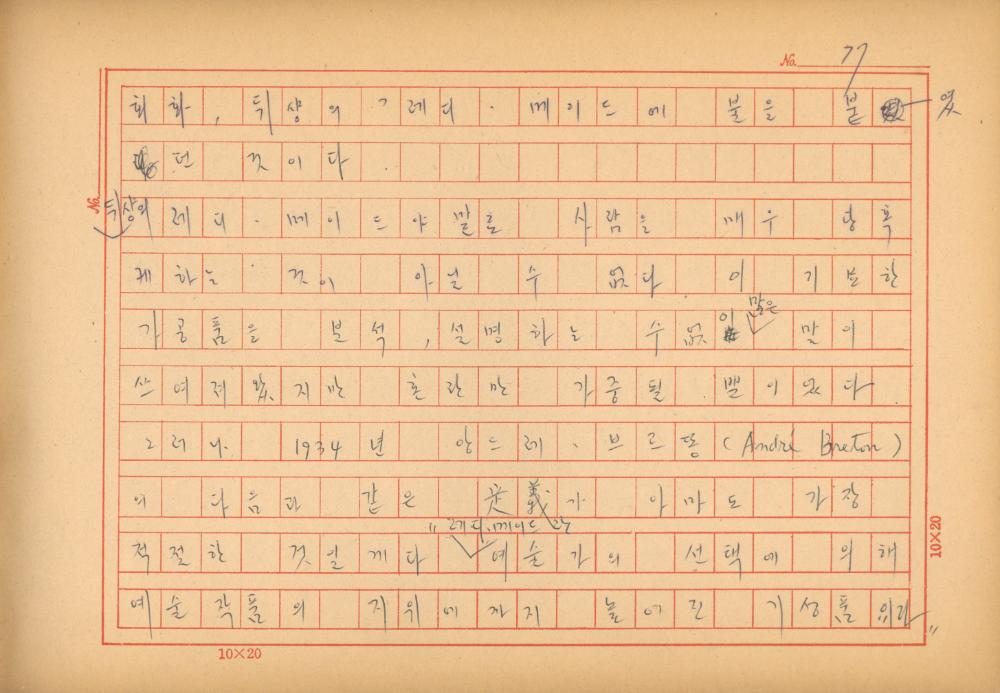 No. 77
회화, 뒤샹의 「레디·메이드에 불을 붙였
던 것이다
No. 뒤샹의 레디·메이드야말로 사람을 매우 당혹
케하는 것이 아닐 수 없다 이 기묘한
가공품을 분석, 설명하는 수없이 많은 말이
쓰여져 왔지만 혼란만 가중될 뿐이었다.
그러나 1934년 앙드레·브르통(André Breton)
의 다음과 같은 定義가 아마도 가장
적절한 것일게다 "레디·메이드란 예술가의 선택에 의해
예술작품의 지위에까지 높여진 기성품이다"
10×20
10×20